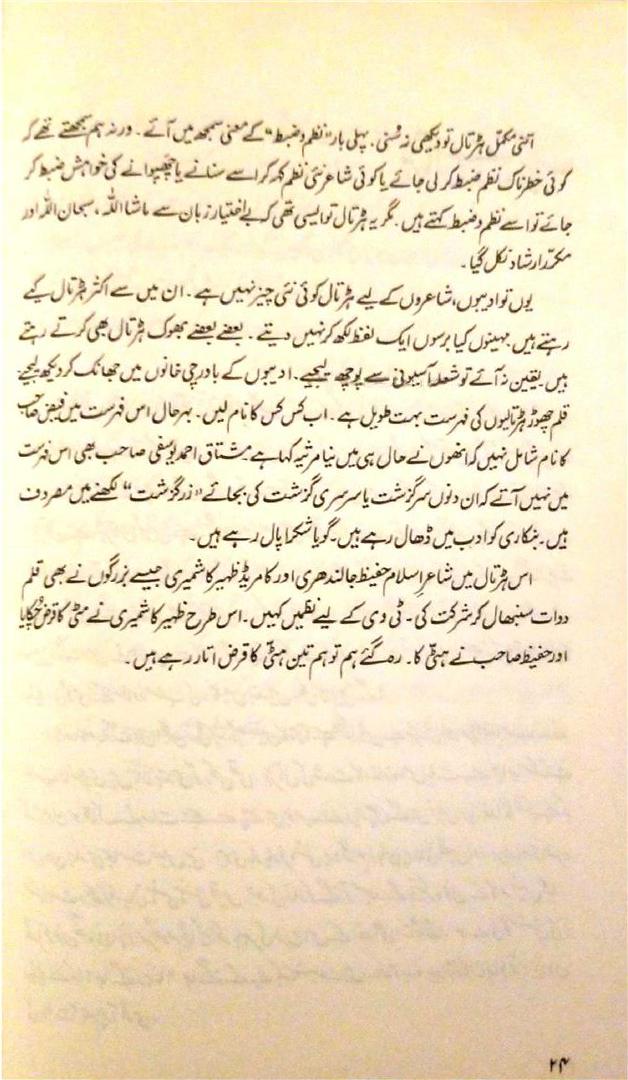 اتنی مکمل ہڑتال تو دیکھی نہ سُنی۔ پہلی بار "نظم و ضبط" کے معنی سمجھ میں آئے۔ ورنہ ہم سمجھتے تھے کہ
کوئی خطرناک نظم ضبط کر لی جائے یا کوئی شاعر نئی نظم کہہ کر اسے سنانے یا چھپوانے کی خواہش ضبط کر
جائے تو اسے نظم و ضبط کہتے ہیں۔ مگر یہ ہڑتال تو ایسی تھی کہ بے اختیار زبان سے ماشااللہ، سبحان اللہ اور
مکرّر ارشاد نکل گیا۔
یوں تو ادیبوں، شاعروں کے لیے ہڑتال کوئی نئی چیز نہیں ہے۔ ان میں سے اکثر ہڑتال کیے
رہتے ہیں۔ مہینوں کیا برسوں ایک لفظ لکھ کر نہیں دیتے۔ بعضے بعضے بھوک ہڑتال بھی کرتے رہتے
ہیں یقین نہ آئے تو شعلہ آسیونی سے پوچھ لیجیے۔ ادیبوں کے باورچی خانوں میں جھانک کر دیکھ لیجیے
قلم چھوڑ ہڑتالیوں کی فہرست بہت طویل ہے۔ اب کس کس کا نام لیں۔ بہرحال اس فہرست میں فیض صاحب
کا نام شامل نہیں کہ انھوں نے حال ہی میں نیا مرثیہ کہا ہے۔ مشتاق احمد یوسفی صاحب بھی اس فہرست
میں نہیں آتے کہ ان دنوں سرگزشت یا سرسری گزشت کی بجائے "زرگزشت" لکھنے میں مصروف
ہیں۔ بنکاری کو ادب میں ڈھال رہے ہیں۔ گویا شکما پال رہے ہیں۔
اس ہڑتال میں شاعرِ اسلام حفیظ جالندھری اور کامریڈ ظہیر کاشمیری جیسے بزرگوں نے بھی قلم
دوات سنبھال کر شرکت کی۔ ٹی وی کے لیے نظمیں کہیں۔ اس طرح ظہیر کاشمیری نے مٹی کا قرض چُکایا
اور حفیظ صاحب نے ہٹّی کا۔ رہ گئے ہم تو ہم تین ہٹّی کا قرض اتار رہے ہیں۔
۲۴